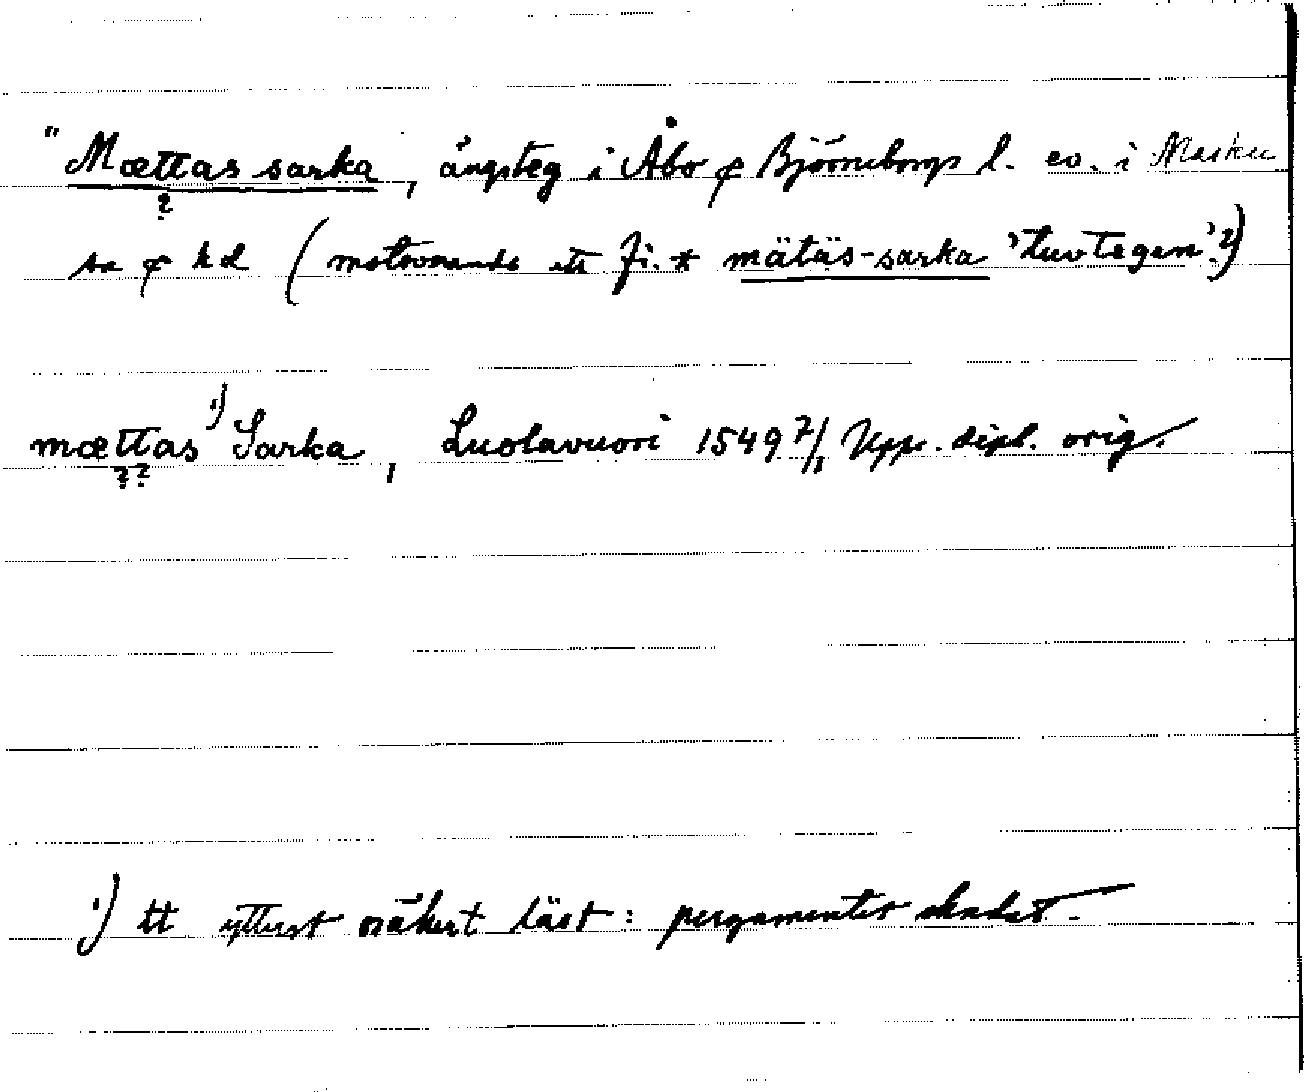 "Mættas sarka, ängsteg i Åbo & Björneborgs l. ev. i Masku
?
sn & hd (motsvarande ett fi. * mätäs-sarka 'tuvtegen'?)
mættas ¹) Sarka, Luolavuori 1549 7/1 Upps. dipl. orig.
??
¹) tt ytterst osäkert läst: pergamentet skadat.